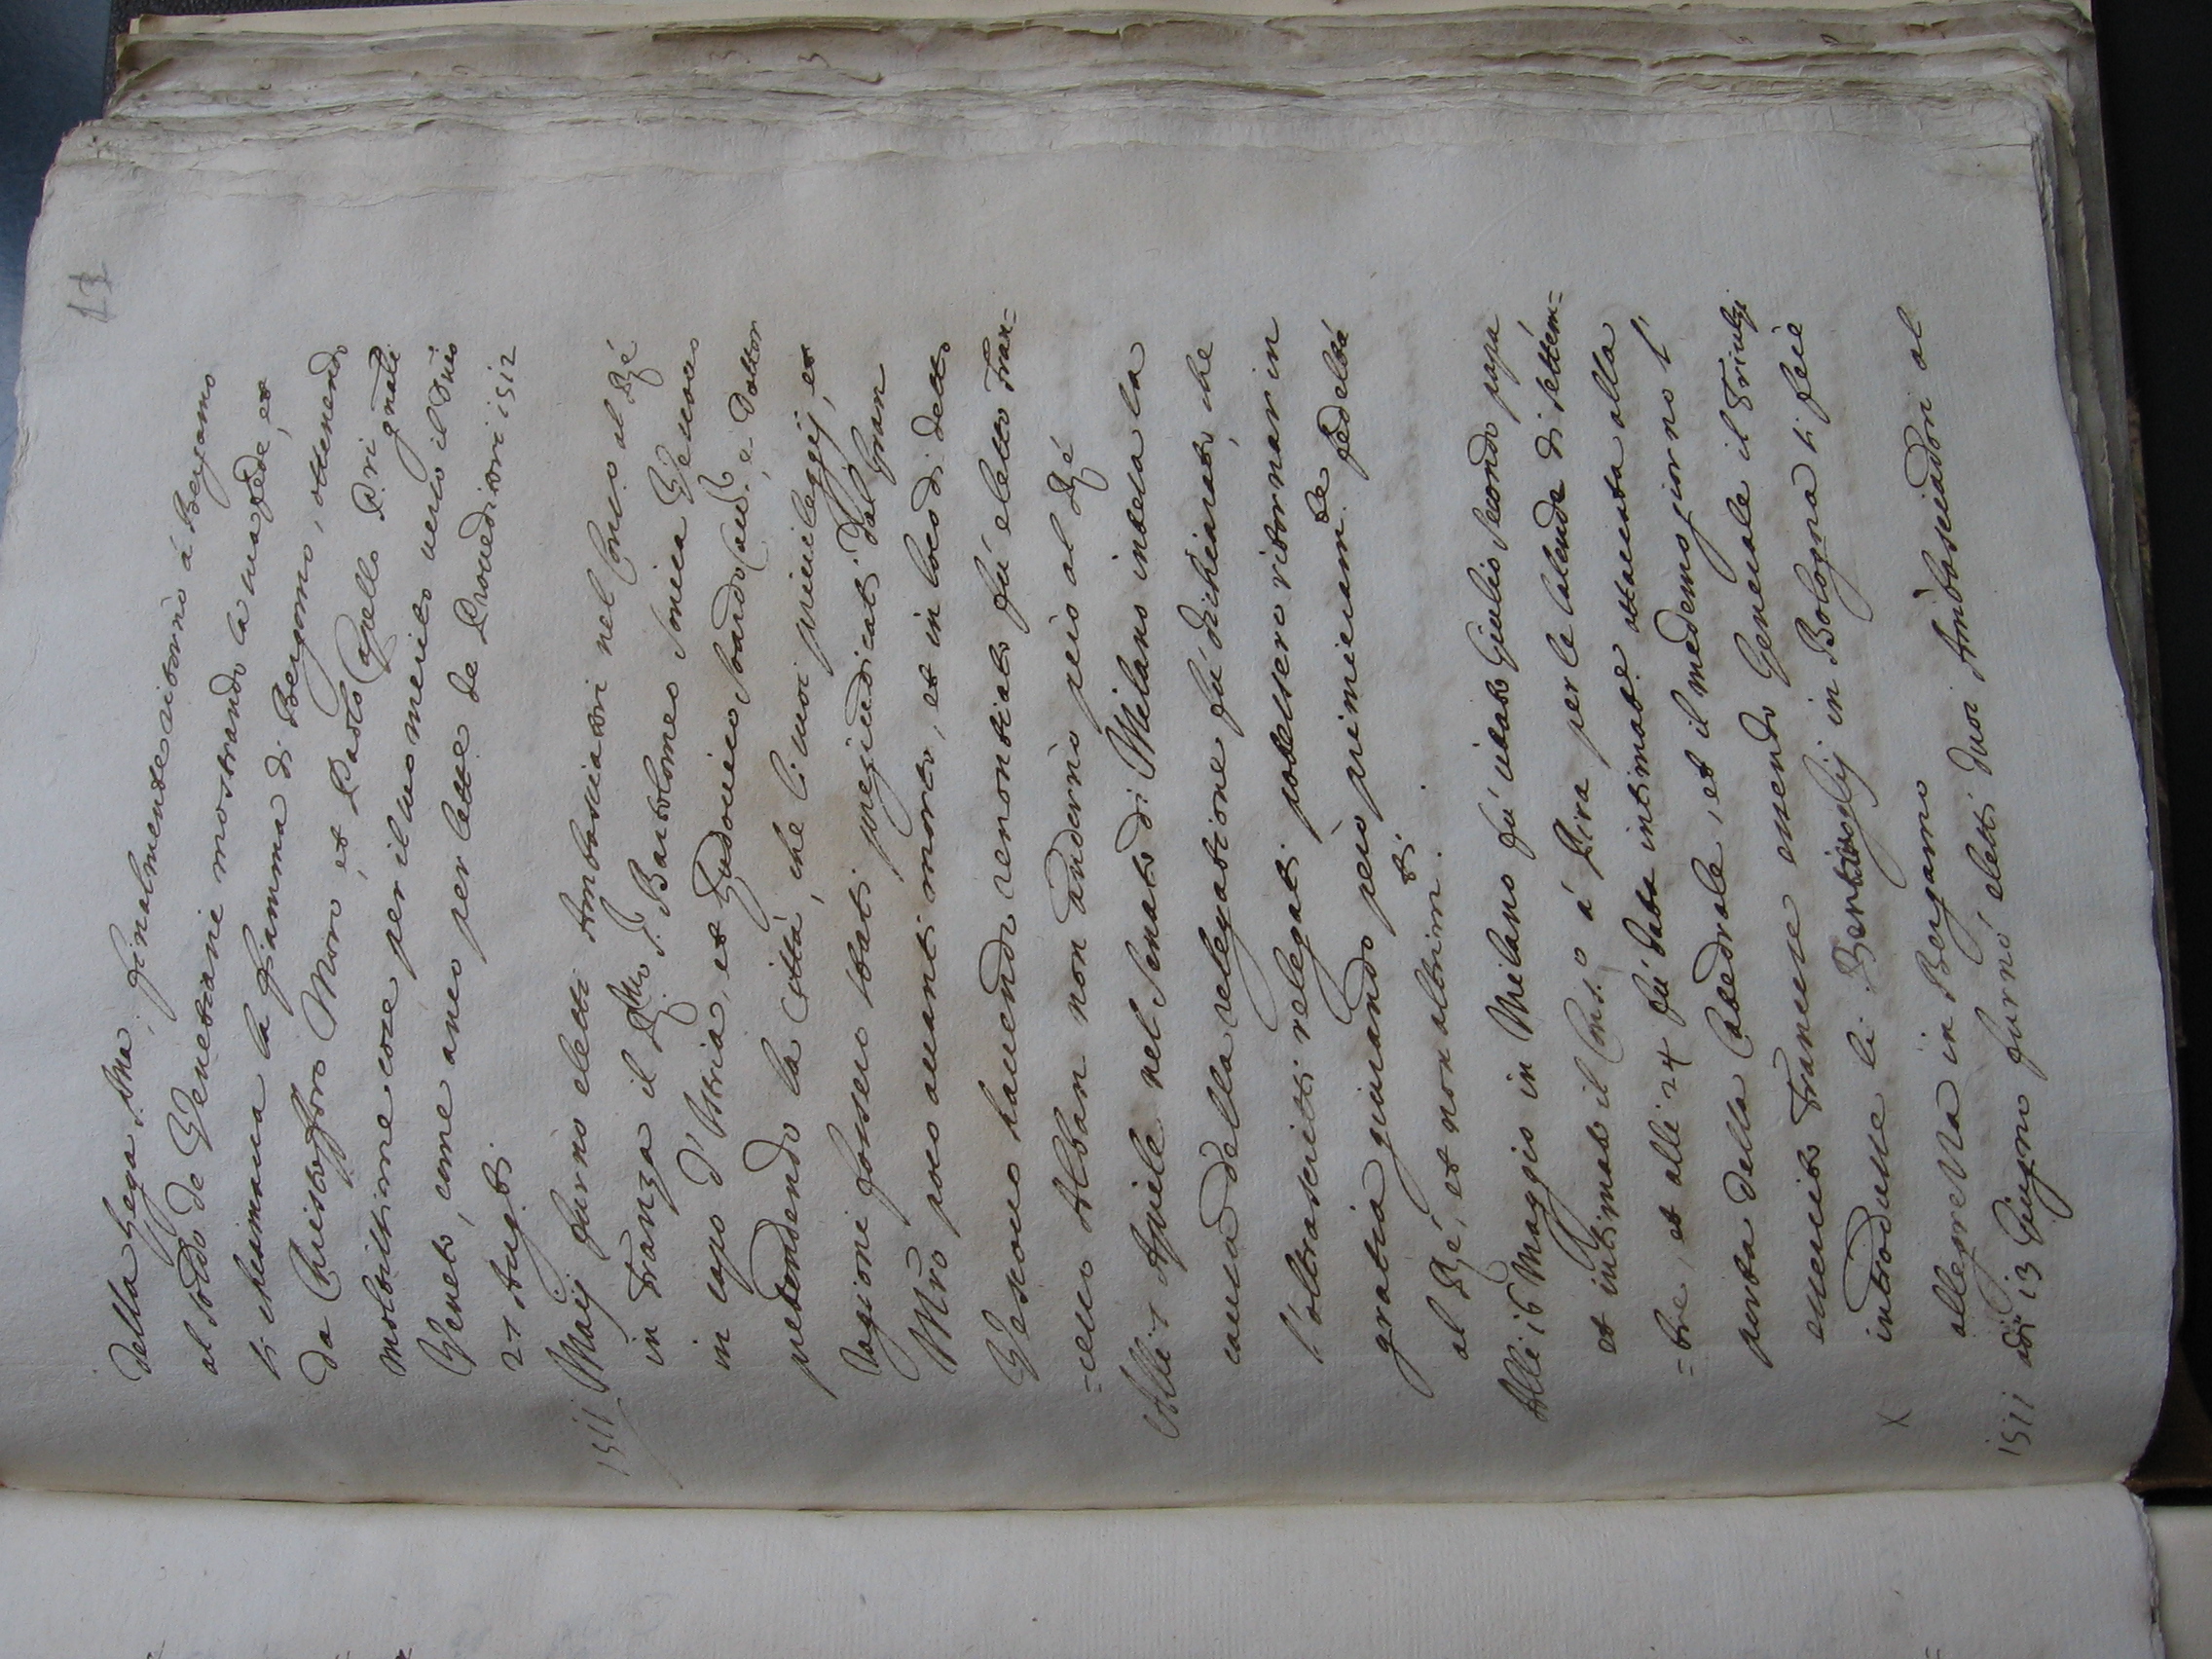 11
della Lega. Ma, finalmente ritornò à Bergamo
al soldo de Venetiani mostrando la sua fede, et
si chiamava la fiamma di Bergomo, ottenendo
da Christofforo Moro, et Paolo Capello P.ri gnāli
moltissime cose per il suo merito verso il Dñio
Veneto, come anco per lette de Proveditori 1512
21 Aug.ti
1511 Maij furno eletti Ambasciatori nel Conso al Rè
in Franza il R.mo P. Bartolomeo Sonica Vescovo
in capo d'Istria, et Ludovico Soardo Cav.r, e Dottor
pretendendo la Città, che li suoi privileggij, et
raggioni fossero stati pregiudicati dal Gran
Mr̃o poco avanti morto, et in loco di detto
Vescovo havendo renontiato fù eletto Fran=
=cesco Alban non anderno però al Rè
Alli 1 Aprile nel Senato di Milano intesa la
causa della relegatione fù dichiarato, che
l'oltrascritti relegati potessero ritornar in
gratia giurando però primieram.te fedeltà
al Rè, et non altrim.ti.
Alli 16 Maggio in Milano fù citato Giulio Secondo papa
et intimato il Cons.o à Pisa per le calende di settem=
=bre, et alli 24 fù data intimat.e attaccata alla
porta della Catedrale, et il medemo giorno l'
essercito Francese essendo Generale il Triulzi
introdusse li Bentivoglij in Bologna si fece
X allegrezza in Bergamo
1511 adi 13 Giugno furnò eletti duoi Ambasciadori al